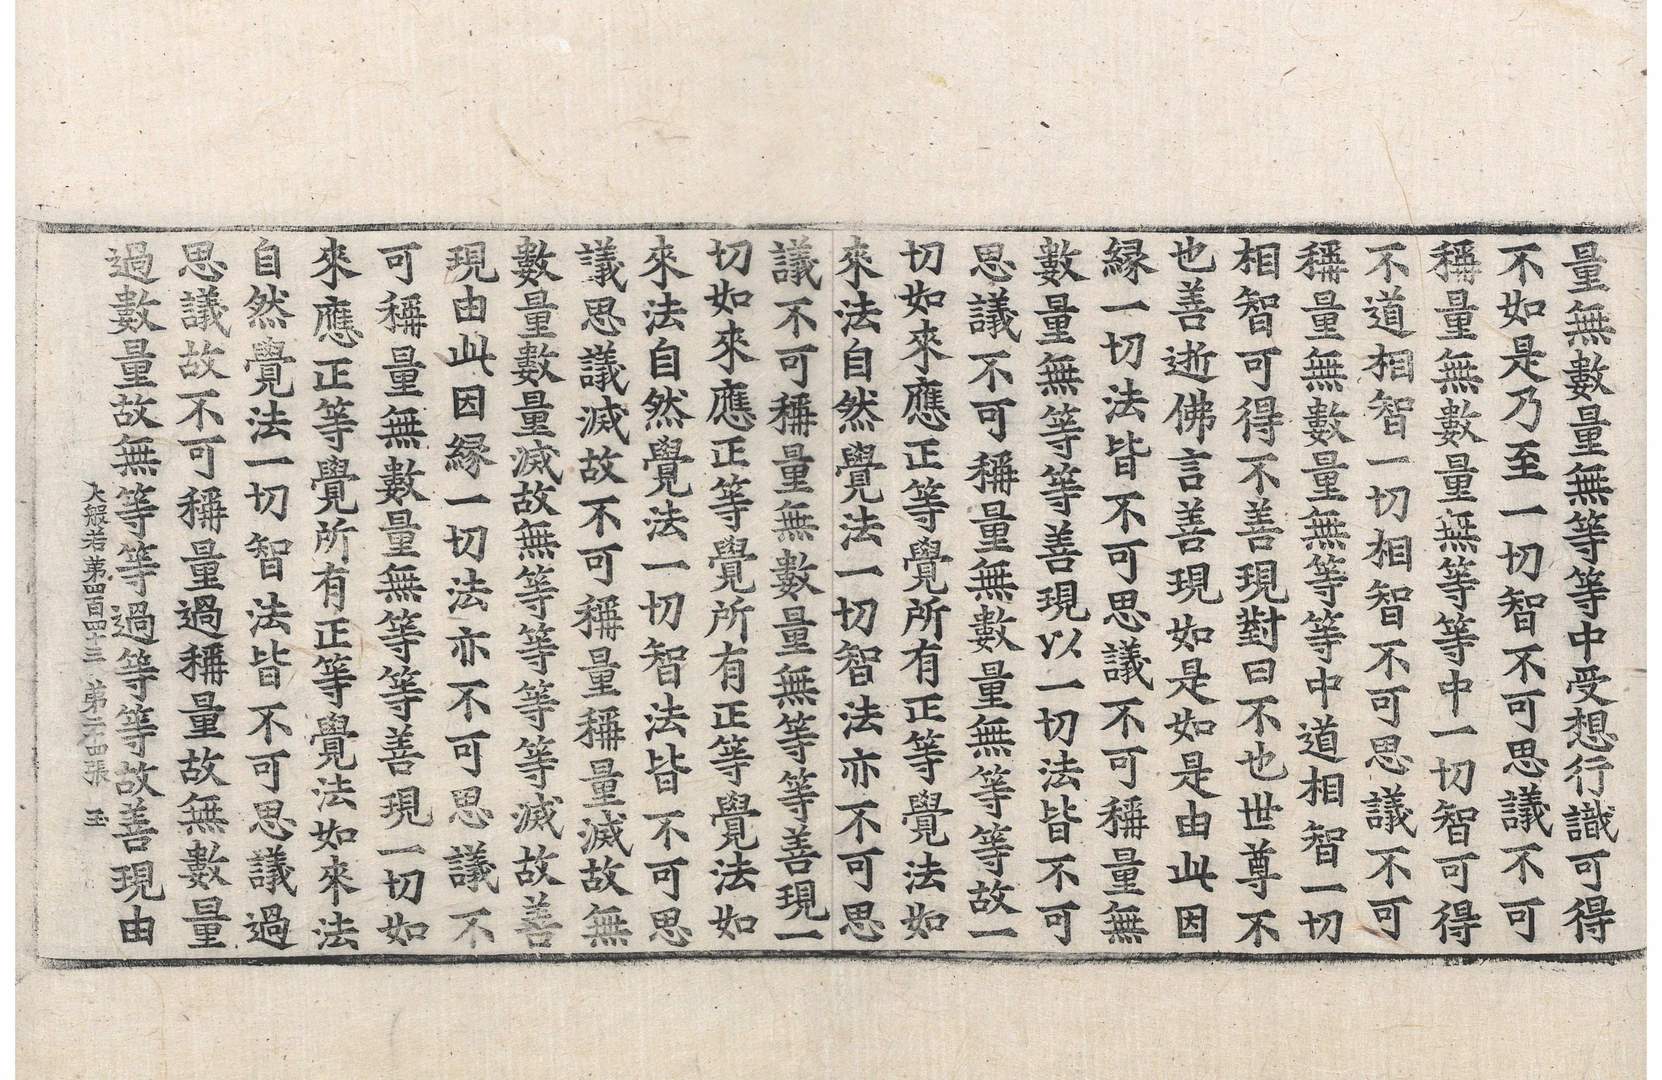 量無數量無等等中受想行識可得
不如是乃至一切智不可思議不可
稱量無數量無等等中一切智可得
不道相智一切相智不可思議不可
稱量無數量無等等中道相智一切
相智可得不善現對曰不也世尊不
也善逝佛言善現如是如是由此因
緣一切法皆不可思議不可稱量無
數量無等等善現以一切法皆不可
思議不可稱量無數量無等等故一
切如來應正等覺所有正等覺法如
來法自然覺法一切智法亦不可思
議不可稱量無數量無等等善現一
切如來應正等覺所有正等覺法如
來法自然覺法一切智法皆不可思
議思議滅故不可稱量稱量滅故無
數量數量滅故無等等等等滅故善
現由此因緣一切法亦不可思議不
可稱量無數量無等等善現一切如
來應正等覺所有正等覺法如來法
自然覺法一切智法皆不可思議過
思議故不可稱量過稱量故無數量
過數量故無等等過等等故善現由
大般若第四百四十三 第二十四張 玉